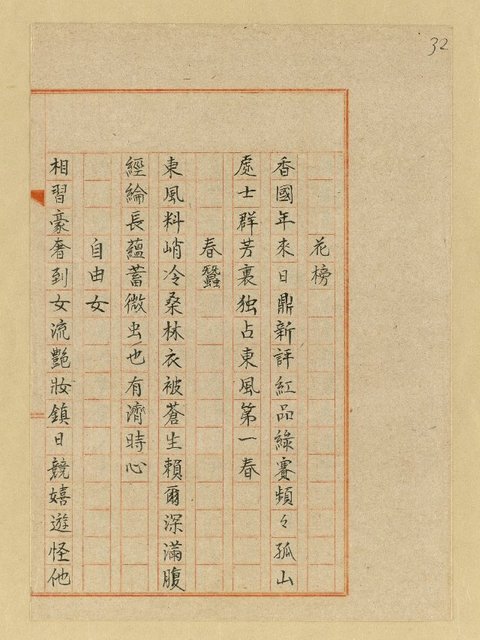 32
花榜
香國年來日鼎新評紅品綠賽頻々孤山
處士群芳裏独占東風第一春
春蠶
東風料峭冷桑林衣被蒼生賴爾深滿腹
經綸長蘊蓄微虫也有濟時心
自由女
相習豪奢到女流艷妝鎮日競嬉遊怪他